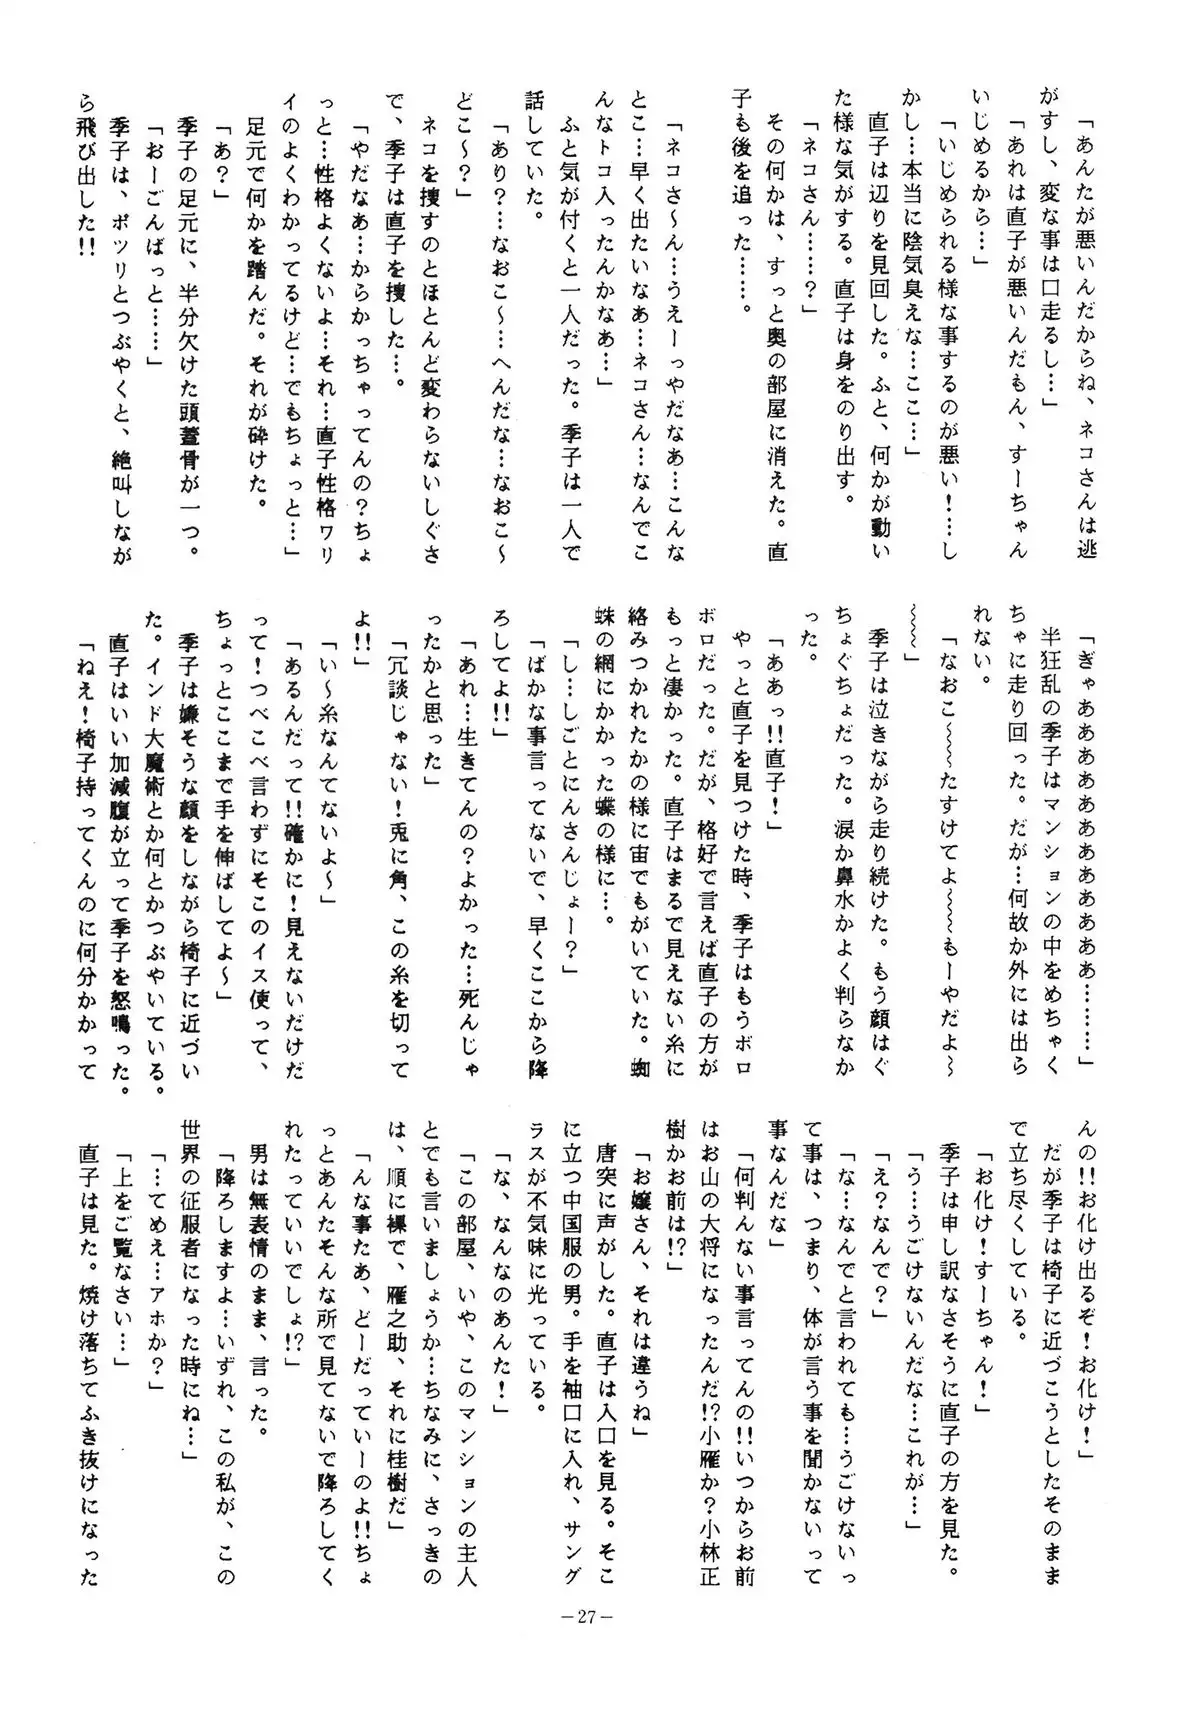 「あんたが悪いんだからね、ネコさんは逃
がすし、変な事は口走るし…」
「あれは直子が悪いんだもん、すーちゃん
いじめるから…」
「いじめられる様な事するのが悪い！…し
かし…本当に陰気臭えな…ここ…」
直子は辺りを見回した。ふと、何かが動い
た様な気がする。直子は身をのり出す。
「ネコさん……？」
その何かは、すっと奥の部屋に消えた。直
子も後を追った……。
「ネコさ～ん…うえーっやだなあ…こんな
とこ…早く出たいなあ…ネコさん…なんでこ
んなトコ入ったんかなぁ…」
ふと気が付くと一人だった。季子は一人で
話していた。
「あり？…なおこ～…へんだな…なおこ～
どこ～？」
ネコを捜すのとほとんど変わらないしぐさ
で、季子は直子を捜した…。
「やだなあ…からかっちゃってんの？ちょ
っと…性格よくないよ…それ…直子性格ヮリ
イのよくわかってるけど…でもちょっと…」
足元で何かを踏んだ。それが砕けた。
「あ？」
季子の足元に、半分欠けた頭蓋骨が一つ。
「おーごんばっと……」
季子は、ボツリとつぶやくと、絶叫しなが
ら飛び出した!!
「ぎゃああああああああああ…………」
半狂乱の季子はマンションの中をめちゃく
ちゃに走り回った。だが…何故か外には出ら
れない。
「なおこ～～～たすけてよ～～～もーやだよ～
～～～」
季子は泣きながら走り続けた。もう顔はぐ
ちょぐちょだった。涙か鼻水かよく判らなか
った。
「ああっ!!直子！」
やっと直子を見つけた時、季子はもうボロ
ボロだった。だが、格好で言えば直子の方が
もっと凄かった。直子はまるで見えない糸に
絡みつかれたかの様に宙でもがいていた。蜘
蛛の網にかかった蝶の様に…。
「し…しごとにんさんじょー？」
「ばかな事言ってないで、早くここから降
ろしてよ!!」
「あれ…生きてんの？よかった…死んじゃ
ったかと思った」
「冗談じゃない！兎に角、この糸を切って
よ!!」
「い～糸なんてないよ～」
「あるんだって!!確かに！見えないだけだ
って！つべこべ言わずにそこのイス使って、
ちょっとここまで手を伸ばしてよ～」
季子は嫌そうな顔をしながら椅子に近づい
た。インド大魔術とか何とかつぶやいている。
直子はいい加減腹が立って季子を怒鳴った。
「ねえ！椅子持ってくんのに何分かかって
んの!!お化け出るぞ！お化け！」
だが季子は椅子に近づこうとしたそのまま
で立ち尽くしている。
「お化け！すーちゃん！」
季子は申し訳なさそうに直子の方を見た。
「う…うごけないんだな…これが…」
「え？なんで？」
「な…なんでと言われても…うごけないっ
て事は、つまり、体が言う事を聞かないって
事なんだな」
「何判んない事言ってんの!!いつからお前
はお山の大将になったんだ!?小雁か？小林正
樹かお前は!?」
「お嬢さん、それは違うね」
唐突に声がした。直子は入口を見る。そこ
に立つ中国服の男。手を袖口に入れ、サング
ラスが不気味に光っている。
「な、なんなのあんた！」
「この部屋、いや、このマンションの主人
とでも言いましょうか…ちなみに、さっきの
は、順に裸で、雁之助、それに桂樹だ」
「んな事たあ、どーだっていーのよ!!ちょ
っとあんたそんな所で見てないで降ろしてく
れたっていいでしょ!?」
男は無表情のまま、言った。
「降ろしますよ…いずれ、この私が、この
世界の征服者になった時にね…」
「…てめえ…アホか？」
「上をご覧なさい…」
直子は見た。焼け落ちてふき抜けになった
－27－